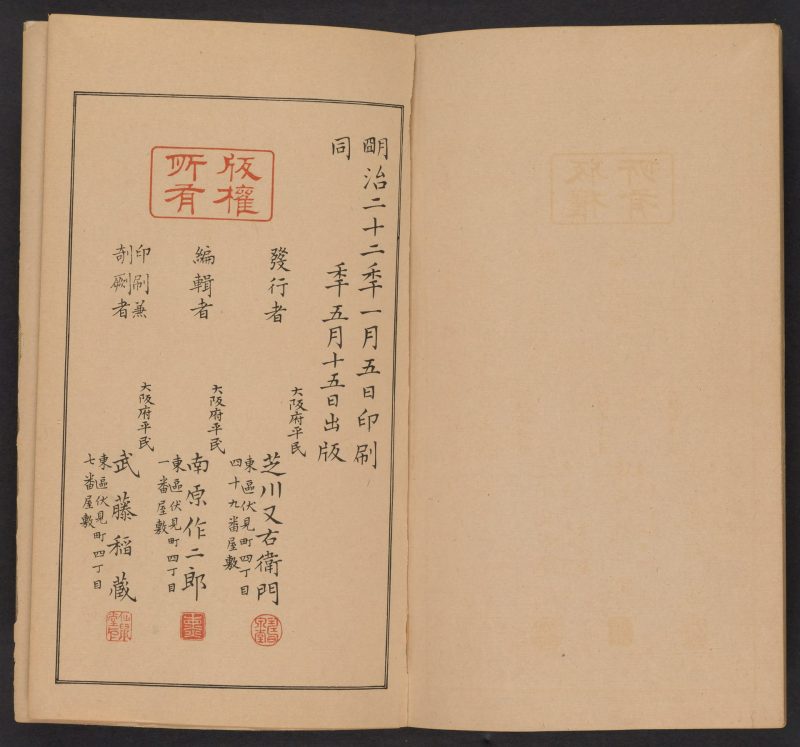 明治二十二季一月五日印刷
同 季五月十五日出版
版權
所有
發行者
大阪府平民
芝川又右衛門
東區伏見町四丁目
四十九番屋敷
編輯者
大阪府平民
南原作二郎
東區伏見町四丁目
一番屋敷
印刷兼
剞劂者
大阪府平民
武藤稲蔵
東區伏見町四丁目
七番屋敷